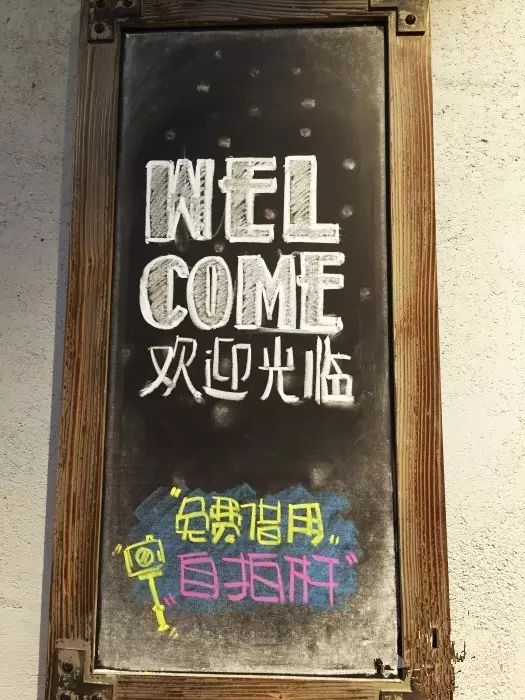 WEL
COME
欢迎光临
"免费借用"
"自拍杆"